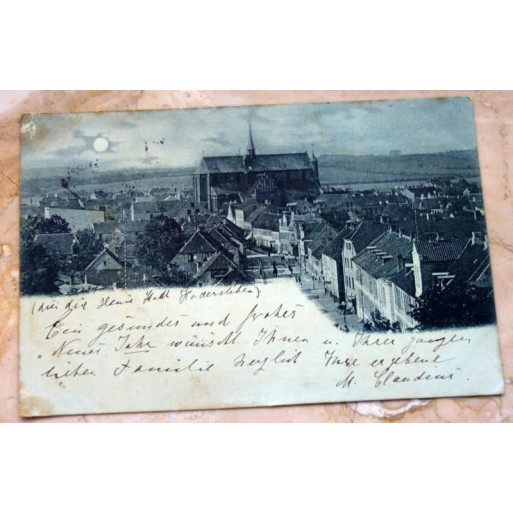 (hier die kleine Stadt Hadersleben)
Ein gesundes und frohes
Neues Jahr wünscht Ihnen u. Ihrer ganzen
lieben Familie herzlich Ihre ergebene
M. Claudius.